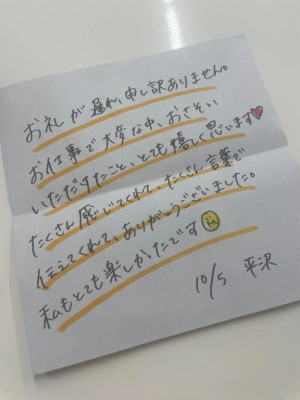 お礼が遅れ、申し訳ありません。
お仕事で大変な中、おさそい
いただけたこと、とても嬉しく思います♥
たくさん感じてくれて、たくさん言葉で
伝えてくれて、ありがとうございました。
私もとても楽しかったです☺
10/5 平沢